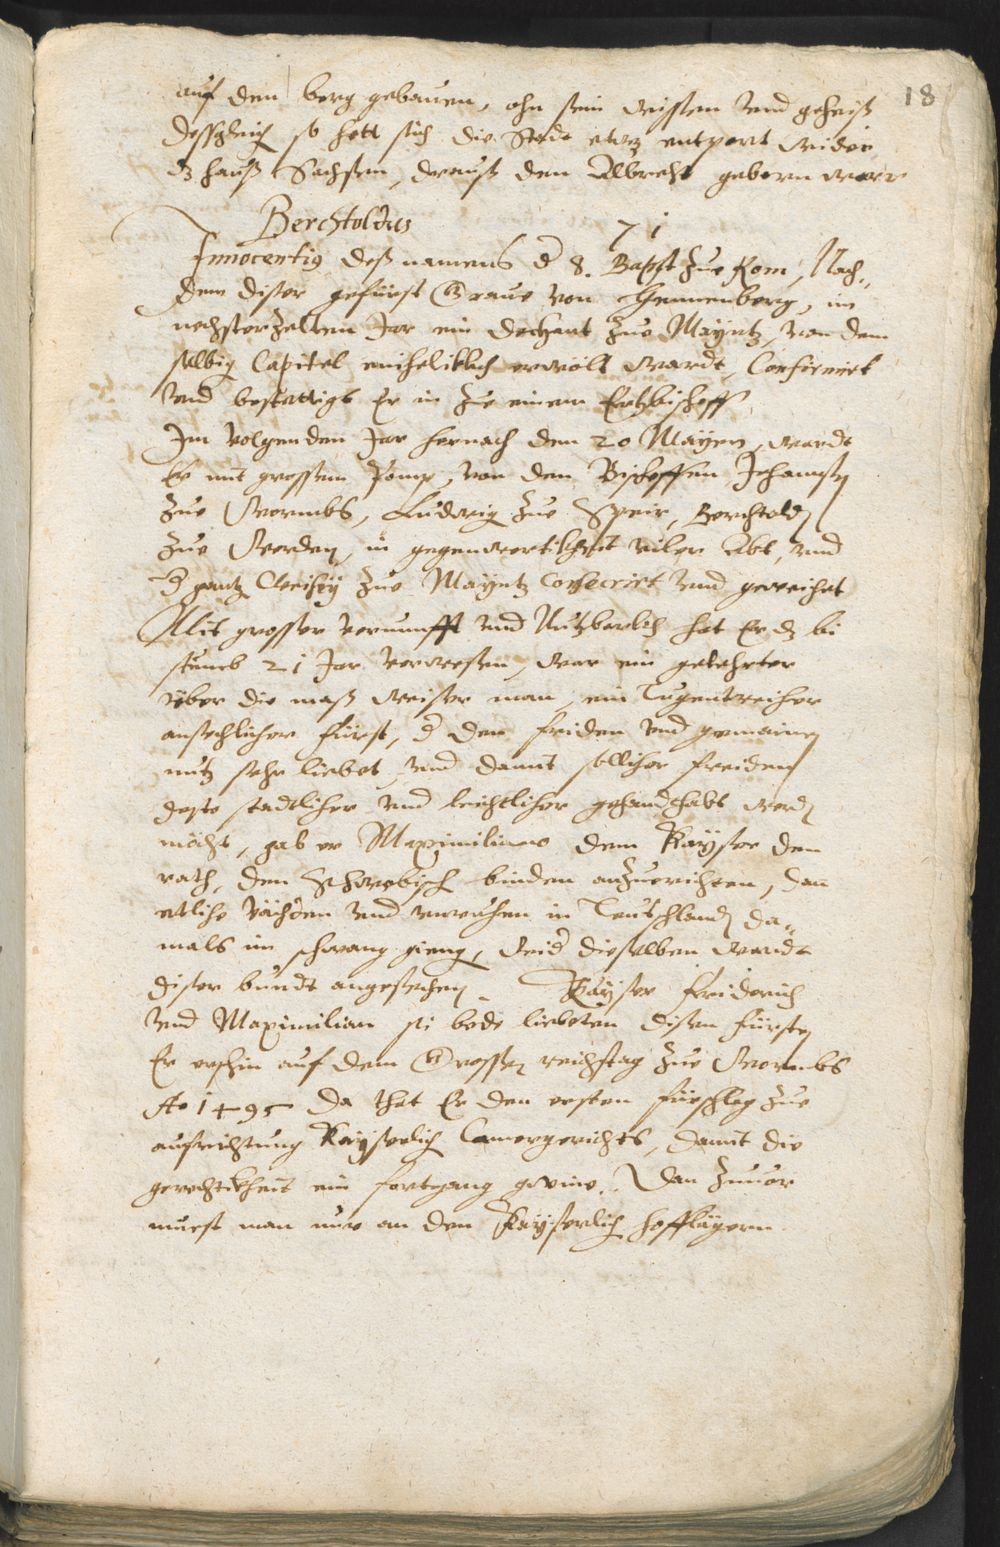 18
auf den berg gebauen, ohn sein wissen vnd geheiß
dessgleich so hett sich die Stadt etwz entpört wider
dz hauß Sachsen, darauß den Albrecht geborn war
Berchtoldus
71
Innocentius deß namens d 8. Bapst zue Rom, Nach„
dem diser gefürst Graue von Hennenberg, im
nechsterzelten Jar ein dechant zue Mayntz, von dem
selbig Capitel einheliklich erwölt wardt, Confirmirt
vnd bestettigt Er in zue einem Ertzbischoff
Im volgenden Jar hernach den 20 Mayen, wardt
Er mit grossem Pomp, von den Bischoffen Johansen
zue Wormbs, Ludwig zue Speir, Berchtolden
zue Werden, in gegenwertikheit viler Abt, vnd
d gantz Clerisey zue Mayntz consecrirt vnd geweihet
Mit grosser vernunfft vnd Nutzbarlich hat Er dz bi
stumb 21 Jar verwesen, war ein gelehrter
über die maß weiser man, ein Tugentreicher
ansechlicher fürst, d den friden vnd gemainen
nutz sehr liebet, vnd damit sollicher freiden
desto stadtlicher vnd leichtlicher gehandthabt werden
möcht, gab er Maximiliano dem Kayser den
rath, den Schwebisch binden anzuerichten, dan
etliche vächden vnd vnruhen in Teutschlandt da„
mals im schwang gieng, wid dieselben wardt
diser bundt angesechen. Kayser Friderich
vnd Maximilian si bede liebeten disen fürsten
Er erschin auf dem Grossen reichstag zue Wormbs
Ao 1495 da that Er den ersten fürschlag zue
aufrichtung Kayserlich Camergerichts, damit die
gerechtikheit ein fortgang gwine. Dan zuuor
muest man nur an den Kayserlich hofflägern